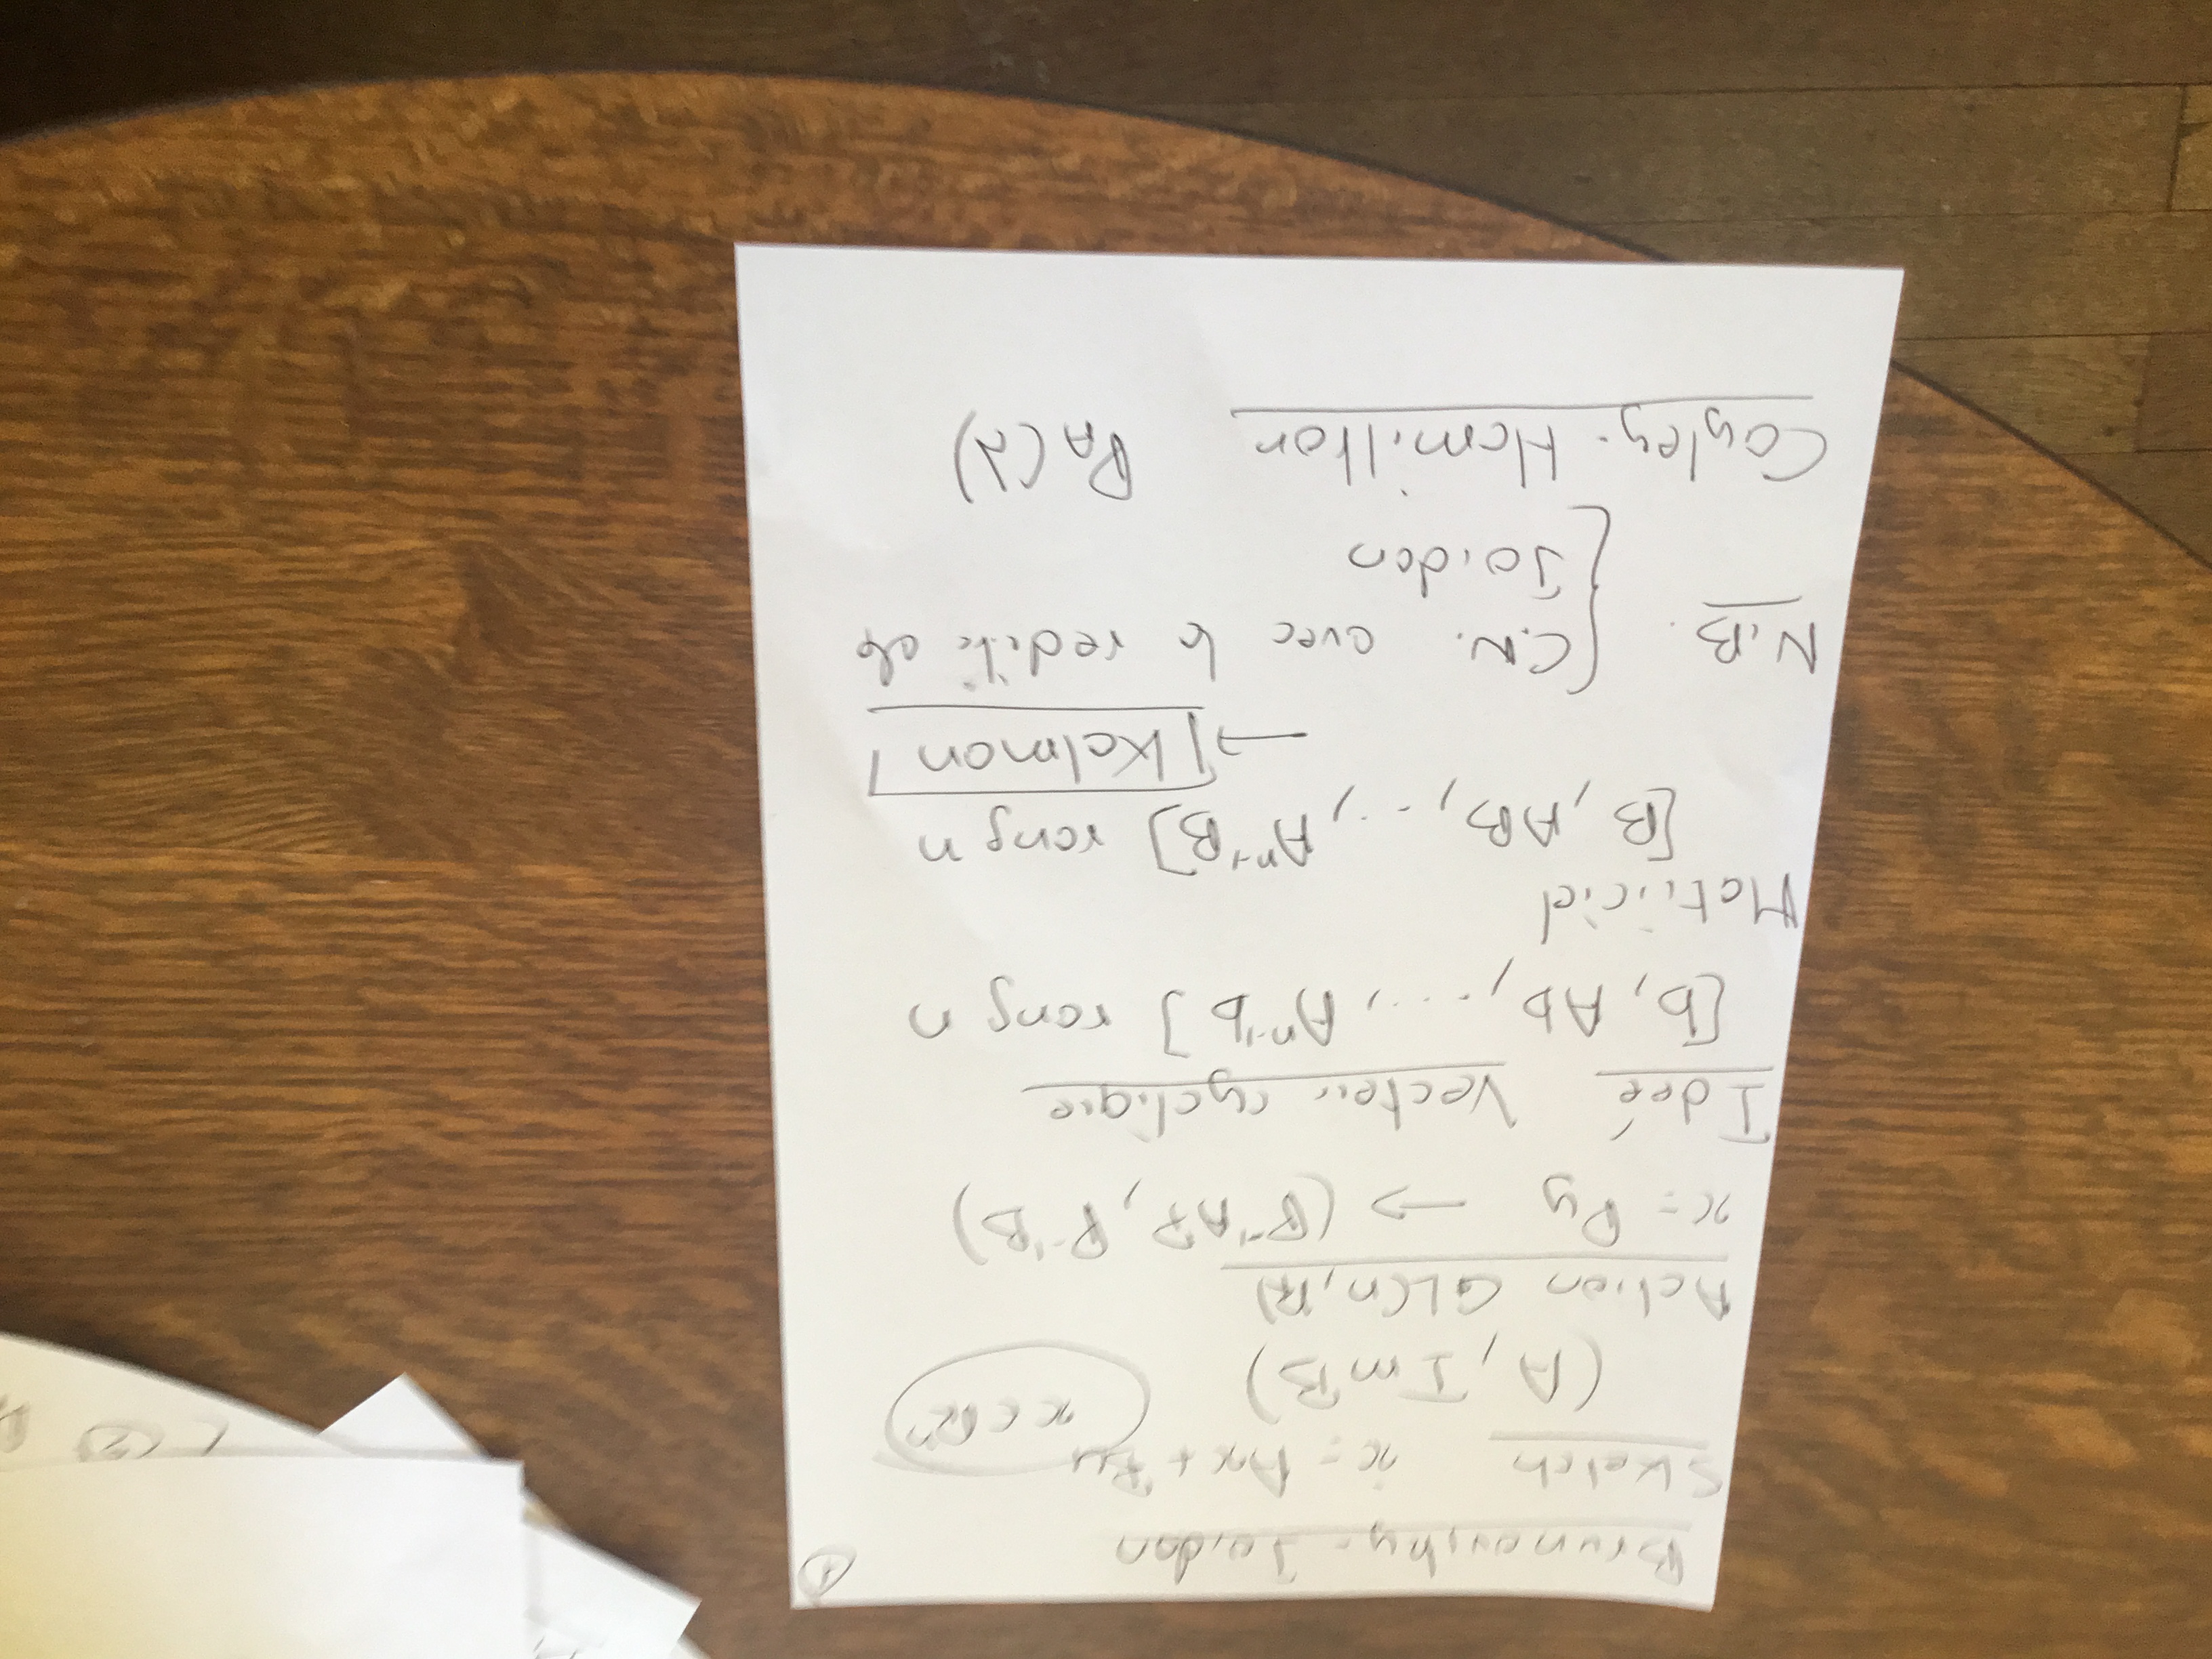 Brunovsky-Jordan ①
Sketch ẋ = Ax + Bu
(A, Im B) x ∈ ℝⁿ
Action GL(n, ℝ)
x = Py → (P⁻¹AP, P⁻¹B)
Ideé Vecteur cyclique
[b, Ab, ..., Aⁿ⁻¹b] rang n
Matriciel
[B, AB, ..., Aⁿ⁻¹B] rang n
→ Kalman
N.B. C.N. avec le de
Jordan
Cayley-Hamilton P_A(λ)
(2)